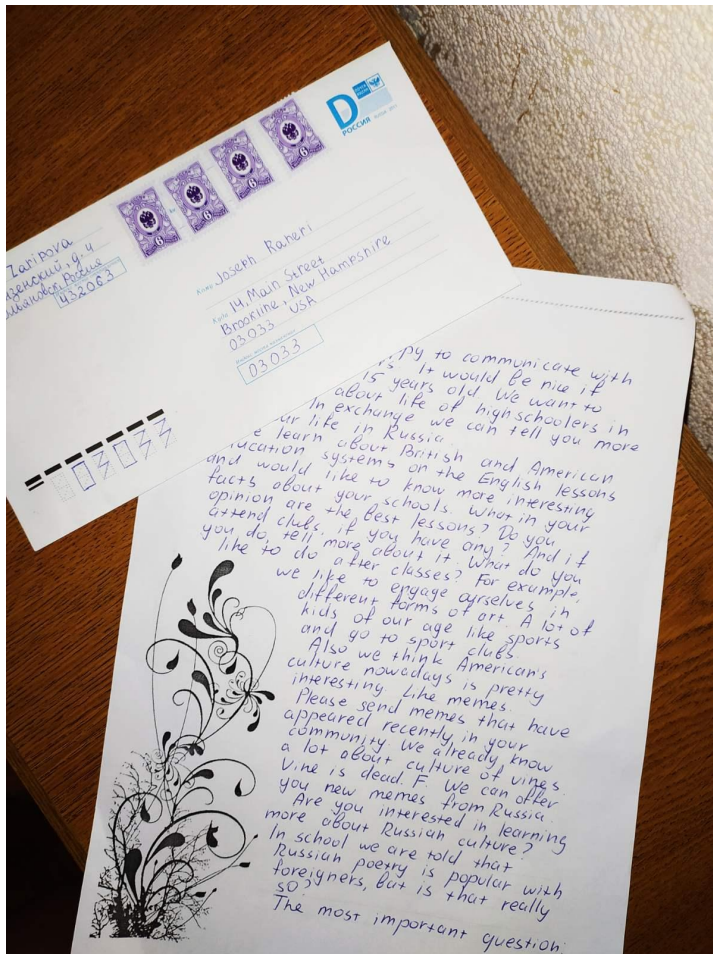 6
6
6
6
D
ПОЧТА РОССИИ
РОССИЯ
Zaripova
д. 4
Россия
432063
Кому Joseph Raneri
Куда 14, Main Street
Brookline, New Hampshire
03033 USA
03033
to communicate with
It would be nice if
15 years old. We want to
about life of highschoolers in
In exchange we can tell you more
life in Russia
learn about British and American
systems on the English lessons
and would like to know more interesting
facts about your schools. What in your
opinion are the best lessons? Do you
attend clubs, if you have any? And if
you do, tell more about it. What do you
like to do after classes? For example,
we like to engage ourselves in
different forms of art. A lot of
kids of our age like sports
and go to sport clubs
Also we think American's
culture nowadays is pretty
interesting like memes.
Please send memes that have
appeared recently in your
community. We already know
a lot about culture of vines.
Vine is dead. F. We can offer
you new memes from Russia.
Are you interested in learning
more about Russian culture?
In school we are told that
Russian poetry is popular with
foreigners, but is that really
so?
The most important question: